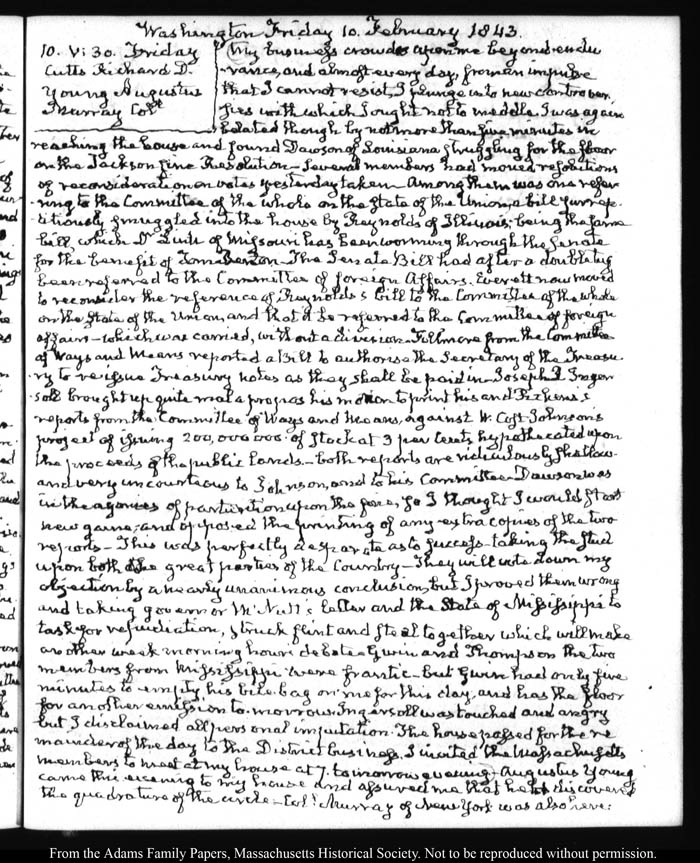 Washington Friday 10. February 1843.
10. V: 30. Friday
Cutts Richard D.
Young Augustus
Murray Col.
My business crowds upon me beyond endu
rance, and almost every day, from an impulse
that I cannot resist, I plunge into new controver
sies with which I ought not to meddle. I was again
belated though by not more than five minutes in
reaching the house and found Dawson of Louisiana struggling for the floor
on the Jackson fine Resolution - Several members had moved resolutions
of reconsideration on votes yesterday taken - Among them was one refer
ring to the Committee of the whole on the State of the Union a bill surrep
titiously smuggled into the house by Reynolds of Illinois; being the same
bill which Dr. Linn of Missouri has been worming through the Senate
for the benefit of Tom Benton - The Senate Bill had after a doubting
been referred to the Committee of foreign Affairs. Everett now moved
to reconsider the reference of Reynolds's bill to the Committee of the whole
on the State of the Union, and that it be referred to the Committee of foreign
affairs - which was carried, without a division. Fillmore from the Committee
of Ways and Means reported a Bill to authorise the Secretary of the Treasu
ry to reissue Treasury notes as they shall be paid in - Joseph R. Inger
soll brought up quite mal a propos his motion to print his and Pickens's
reports from the Committee of Ways and Means, against W. Cost Johnson's
project of issuing 200,000,000 of Stock at 3 per Cent, hypothecated upon
the proceeds of the public lands - both reports are ridiculously shallow
and very uncourteous to Johnson, and to his Committee - Dawson was
in the agonies of parturition upon the fine, so I thought I would start
new game; and opposed the printing of any extra copies of the two
reports - This was perfectly desperate as to success - taking the stud
upon both the great parties of the Country - They will vote down my
objection by a nearly unanimous conclusion, but I proved them wrong
and taking governor Mc.Nutt's letter and the State of Mississippi to
task for repudiation, struck flint and steel together which will make
another week morning hour debate - Gwin and Thompson the two
members from Mississippi were frantic - but Gwin had only five
minutes to empty his bile bag on me for this day, and has the floor
for another emission to morrow. Ingersoll was touched and angry
but I disclaimed all personal imputation. The house passed for the re
mainder of the day to the District business, I invited the Massachusetts
members to meet at my house at 7. to morrow evening - Augustus Young
came this evening to my house and assured me that he had discovered
the quadrature of the circle - Col. Murray of New York was also here:
From the Adams Family Papers, Massachusetts Historical Society. Not to be reproduced without permission.